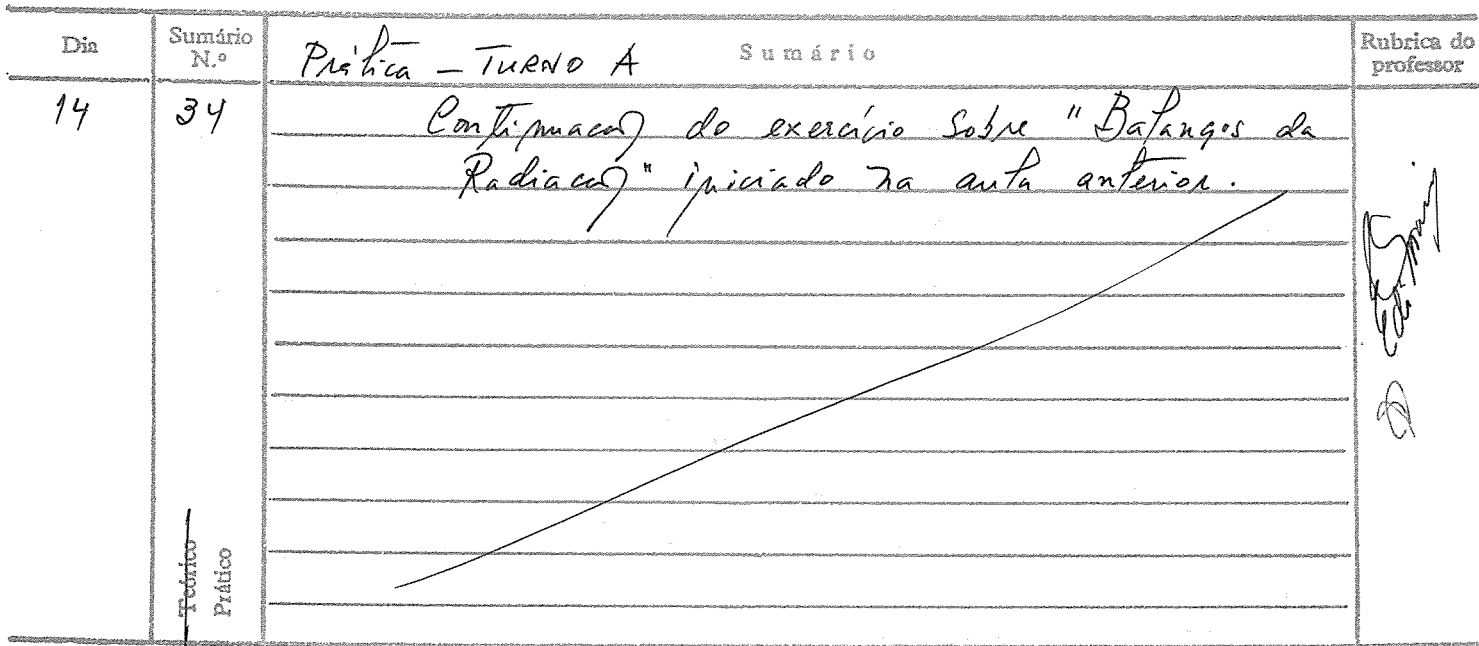 Dia
Sumário N.º
Prática - TURNO A
Sumário
Rubrica do professor
14
34
Continuação do exercício sobre "Balanços da
Radiação" iniciado na aula anterior.
Teórico
Prático